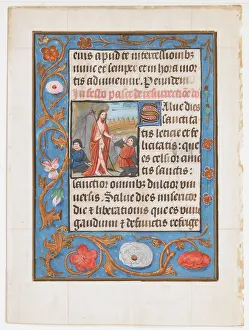 eius apud te intercessionibus
nunc et semper et in hora mor
tis adiuvemur. Per eundem
In festo pasce de resurrectione
Salve dies
sanctita
tis leticie et fe
licitatis: que
es celsior om
tis sanctis:
sanctior omnibus dulcior uni
versis Salve dies misericor
die et liberationis que es vivis
gaudium et defunctis refrige